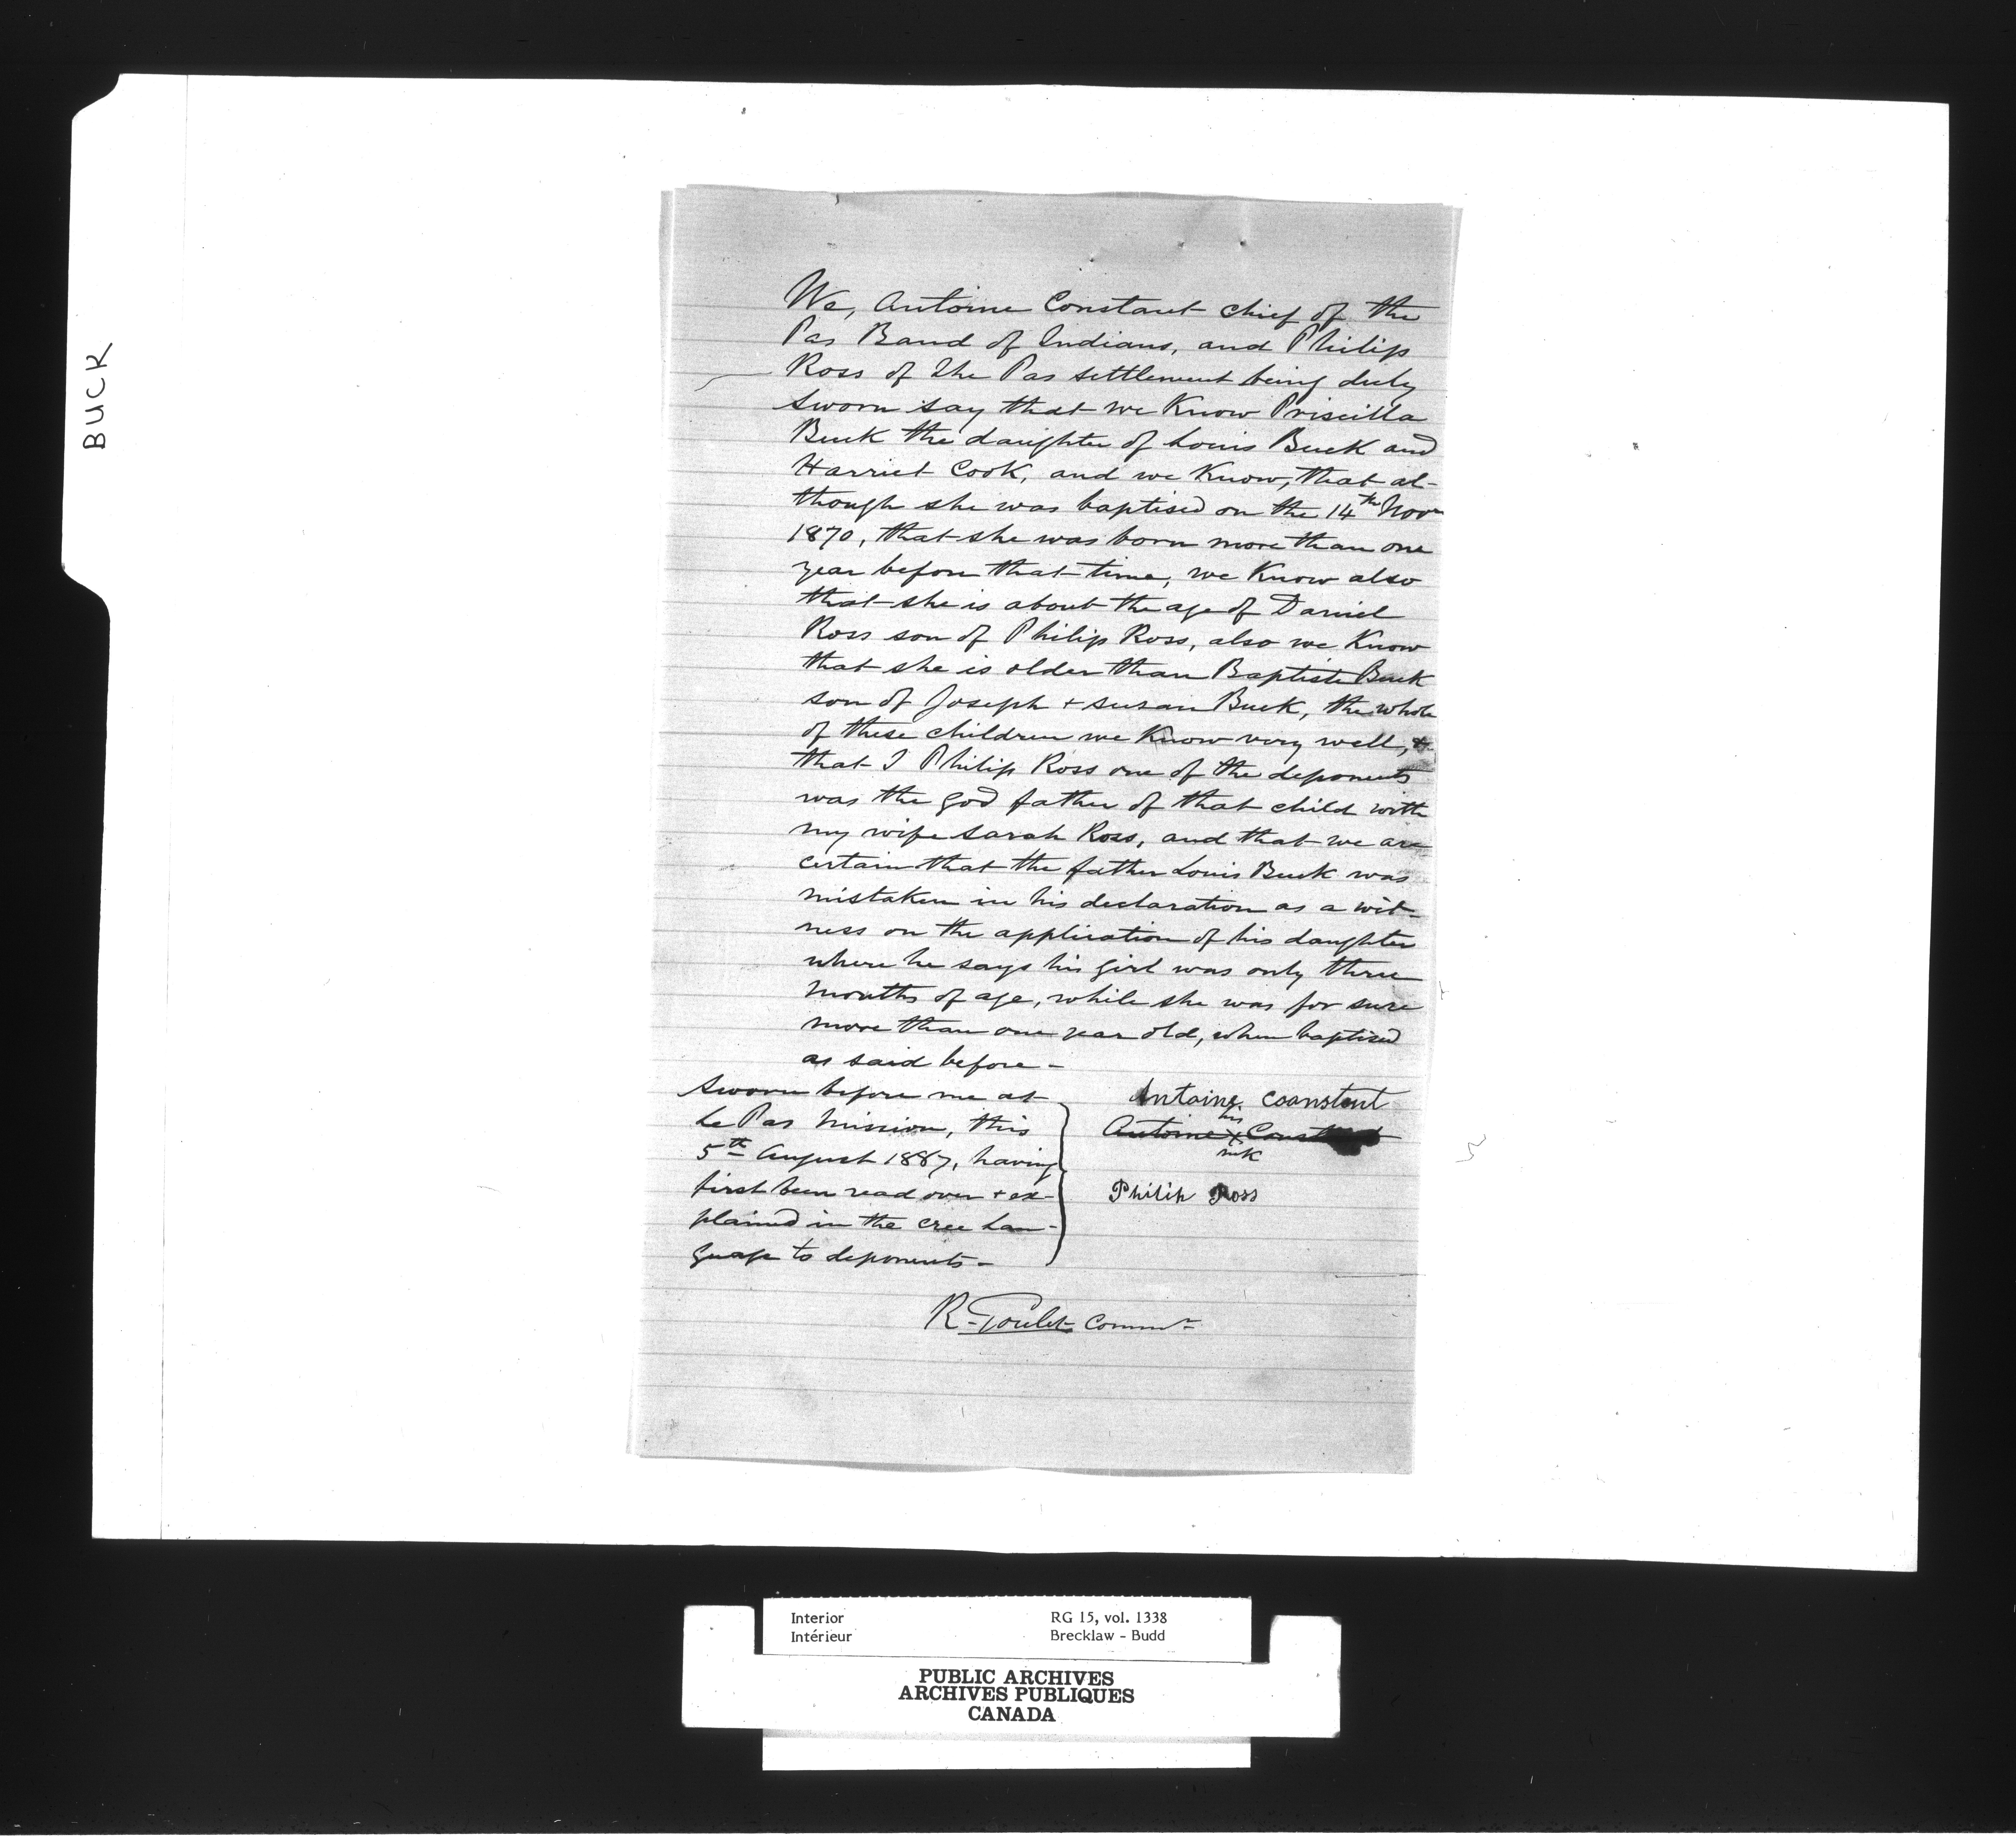 BUCK
We, Antoine Constant chief of the
Pas Band of Indians, and Philip
Ross of the Pas settlement being duly
sworn say that we know Priscilla
Buck the daughter of Louis Buck and
Harriet Cook, and we know, that al-
though she was baptised on the 14th Novr
1870, that she was born more than one
year before that time, we know also
that she is about the age of Daniel
Ross son of Philip Ross, also we know
that she is older than Baptiste Buck
son of Joseph + Susan Buck, the whole
of these children we know very well, &
that I Philip Ross one of the deponents
was the god father of that child with
my wife Sarah Ross, and that we are
certain that the father Louis Buck was
mistaken in his declaration as a wit-
ness on the application of his daughter
where he says his girl was only three
months of age, while she was for sure
more than one year old, when baptised
as said before -
Sworn before me at
Le Pas Mission, this
5th August 1887, having
first been read over + ex-
plained in the cree Lan-
guage to deponents -
Antoine Coanstent
his
Antoine X Constant
mk
Philip Ross
R. Goulet Commr
Interior RG 15, vol. 1338
Intérieur Brecklaw - Budd
PUBLIC ARCHIVES
ARCHIVES PUBLIQUES
CANADA